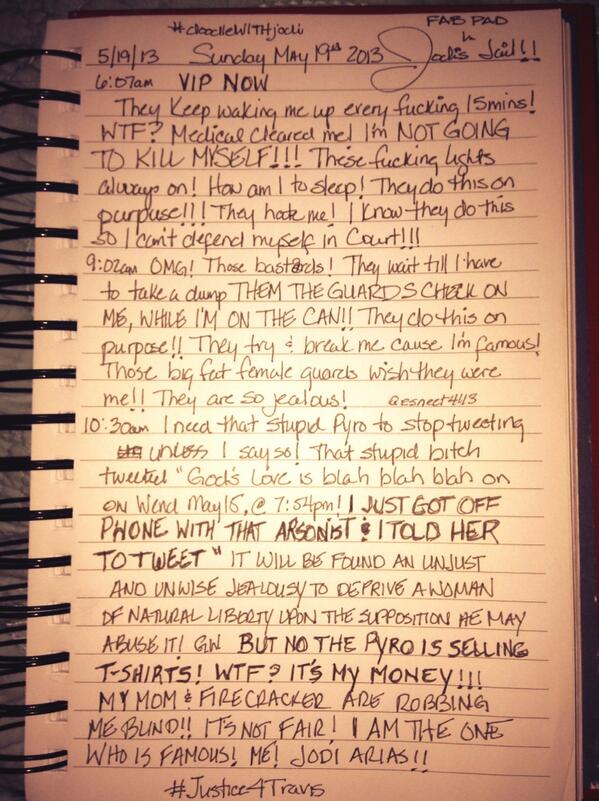 #doodleWITHjodi
FAB PAD
5/19/13 Sunday May 19th 2013 Jodi's Jail!!
6:07am VIP NOW
They Keep waking me up every fucking 15mins!
WTF? Medical cleared me! I'm NOT GOING
TO KILL MYSELF!!! These fucking lights
always on! How am I to sleep! They do this on
purpuse!!! They hate me! I know they do this
so I can't defend myself in Court!!!
9:02am OMG! Those bastards! They wait till I have
to take a dump THEM THE GUARDS CHECK ON
ME, WHILE I'M ON THE CAN!! They do this on
purpose!! They try & break me cause I'm famous!
Those big fat female guards wish they were
me!! They are so jealous! @esnect4113
10:30am I need that stupid Pyro to stop tweeting
unless I say so! That stupid bitch
tweeted "God's Love is blah blah blah on
on Wend May 15, @ 7:54pm! I JUST GOT OFF
PHONE WITH THAT ARSONIST & I TOLD HER
TO TWEET "IT WILL BE FOUND AN UNJUST
AND UNWISE JEALOUSY TO DEPRIVE A WOMAN
OF NATURAL LIBERTY UPON THE SUPPOSITION HE MAY
ABUSE IT! GW BUT NO THE PYRO IS SELLING
T-SHIRTS! WTF? IT'S MY MONEY!!!
MY MOM & FIRECRACKER ARE ROBBING
ME BLIND!! IT'S NOT FAIR! I AM THE ONE
WHO IS FAMOUS! ME! JODI ARIAS!!
#Justice4Travis